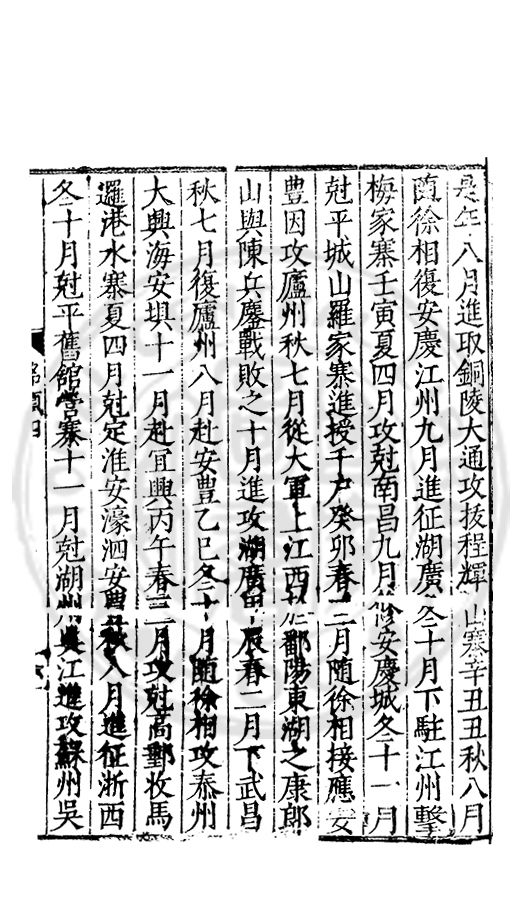 是年八月進取銅陵大通攻拔程輝山寨辛丑秋八月
隨徐相復安慶江州九月進征湖廣冬十月下駐江州擊
梅家寨壬寅夏四月攻尅南昌九月修安慶城冬十一月
尅平城山羅家寨進授千戶癸卯春三月隨徐相接應安
豊因攻廬州秋七月從大軍上江西於鄱陽東湖之康郎
山與陳兵鏖戰敗之十月進攻湖廣甲辰春二月下武昌
秋七月復廬州八月赴安豊乙巳冬十月隨徐相攻泰州
大興海安垻十一月赴宜興丙午春三月攻尅高郵牧馬
邏港水寨夏四月尅定淮安濠泗安豊秋八月進征浙西
冬十月尅平舊館營寨十一月尅湖州吳江進攻蘇州吳